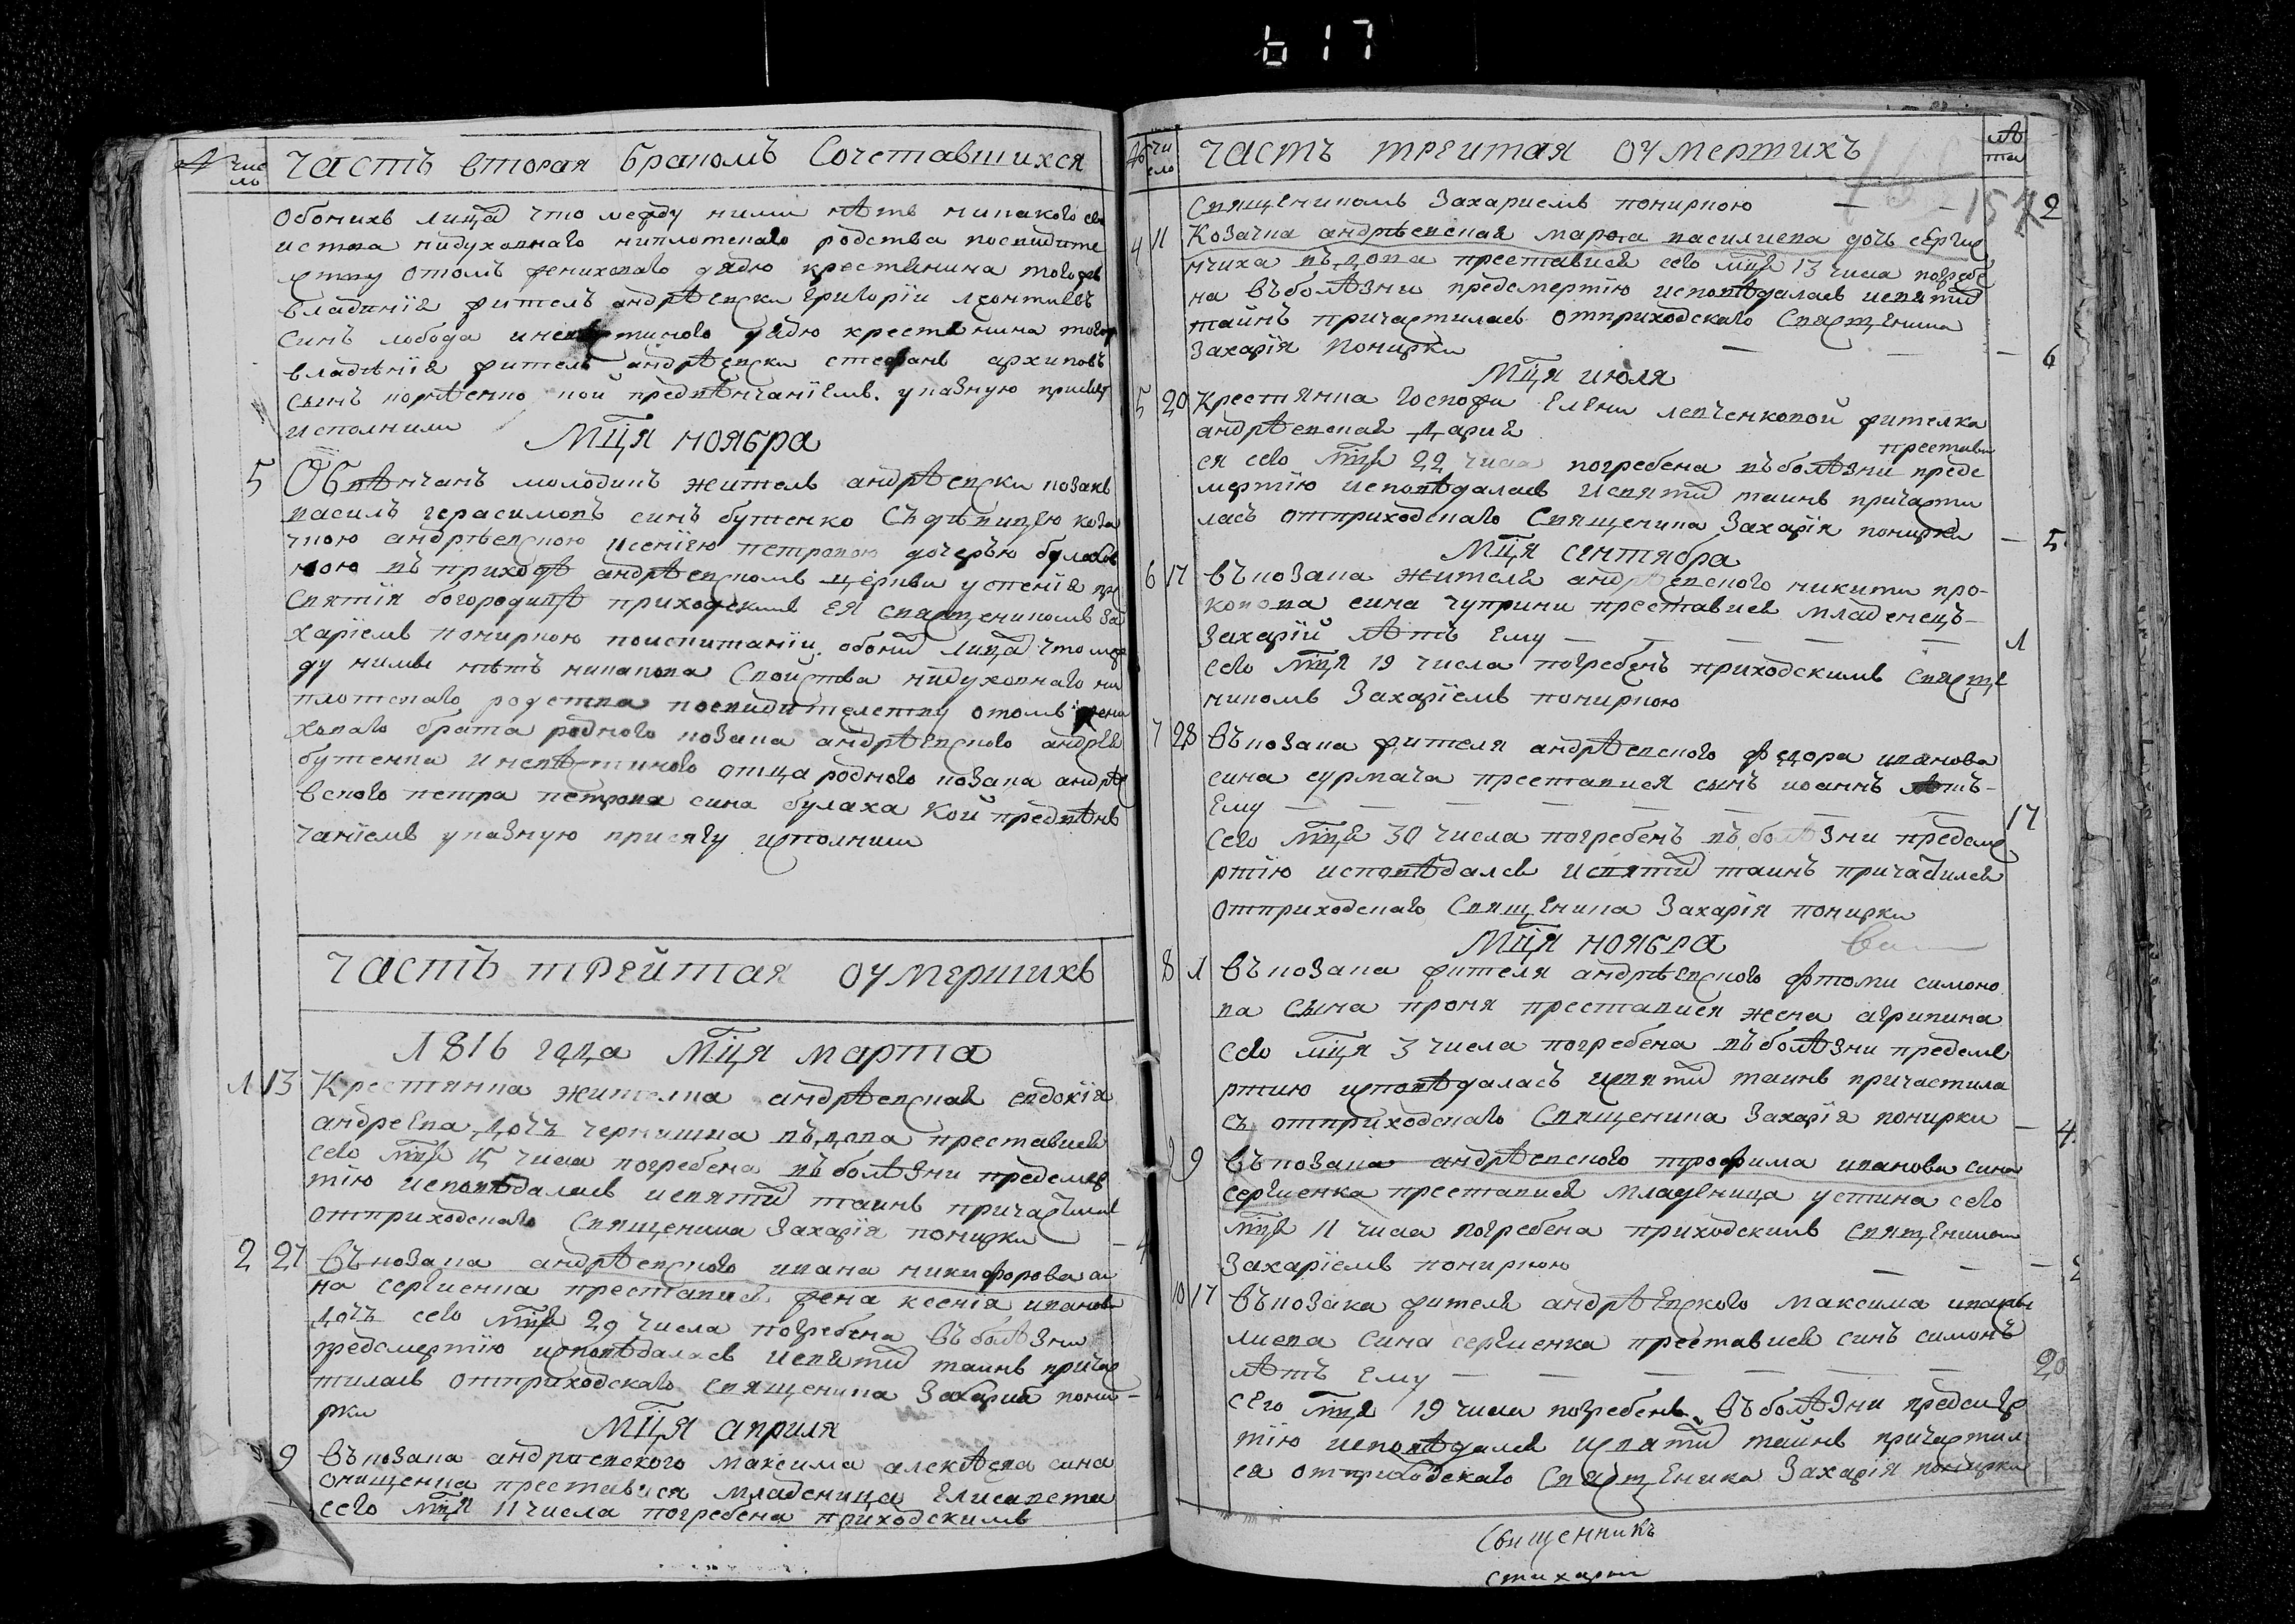 617
Число
Часть вторая бракомъ Сочетавшихся
обоихъ лицъ что между ними нѣтъ никакого сво
иства нидуховнаго ниплотскаго родства посвидите
лству отомъ жениховаго дядю крестянина тогожъ
владѣния жителъ андрѣевски григорїи леонтиевъ
синъ лобода иневѣстиного дядю крестянина тогож
владѣнїя жителъ андрѣевски стефанъ архиповъ
сынъ кои предвѣнчанїемъ указную присягу
исполнили
Мця ноября
5 Обвѣнчанъ молодикъ житель андрѣевски козакъ
василъ герасимовъ синъ бутенко Съдѣвицею коза
чкою андрѣевскою ксенїею петровою дочерью булахов
ною въ приходѣ андрѣевскомъ церкви успенїя пр
Святїя богородицѣ приходскимъ ея священикомъ За
харїемъ пониркою поиспитанїи обоихъ лицъ что меж
ду ними нѣтъ никакова Свойства нидуховнаго ни
плотскаго родства посвидителству отомъ жени
ховаго брата родного козака андрѣевского андрея
бутенка иневѣстиного отца родного козака андрѣе
вского петра петрова сина булаха Кой предвѣн
чанїемъ указную присягу исполнили
Часть трейтая оумершихъ
1816 года Мця марта
1 13 Крестянка жителка андрѣевская евдокїя
андреева дочь чернишка вдова преставися
сего мця 15 числа погребена въ болѣзни предсмер
тїю исповѣдалась исвятихъ таинъ причастилась
отприходскаго Священика Захарїя понирки — 4
2 27 Въ козака андрѣевского ивана никифорова си
на сергиенка преставися жена ксенїя иванова
дочь сего мця 29 числа погребена въ болѣзни
предсмертїю исповѣдалась исвятихъ таинъ причас
тилась отприходскаго священика Захарїя пони —
рки
Мця априля
9 Въ козака андрѣевского максима алекѣева сина
онищенка преставися младеница елисавета
сего мця 11 числа погребена приходскимъ
Число
Часть трейтая оумертихъ
лѣта
Священикомъ Захариемъ пониркою — — 2
4 11 Козачка андрѣевская марѳа василиева дочь серги
нчиха вдова преставися сего мця 13 числа погребе
на въ болѣзни предсмертїю исповѣдалась исвятихъ
тайнъ причастилась отприходскаго Священика
Захарїя Понирки — — — 6
Мця июля
5 20 Крестянка госпожи Елени левченковой жителка
андрѣевская дария
преставы
ся сего мця 22 числа погребена въ болѣзни предс
мертїю исповѣдалась исвятихъ таинъ причасти
лась отприходскаго Священика Захарїя понирки — 5
Мця сентября
6 17 Въ козака жителя андрѣевского никити про-
копова сина чуприни преставися младенецъ-
Захарїй лѣтъ ему — — — — — 1
сего мця 19 числа погребенъ приходскимъ Священ
никомъ Захарїемъ пониркою
7 28 Въ козака жителя андрѣевского федора иванова
сина сурмача преставися сынъ иоаннъ лѣтъ-
ему — — — — — — — 17
Сего мця 30 числа погребенъ въ болѣзни предсме
ртїю исповѣдался исвятихъ таинъ причастился
отприходскаго Священика Захарїя понирки
Мця ноября
8 1 Въ козака жителя андрѣевского фтоми симоно
ва сына проня преставися жена агрипина
сего мця 3 числа погребена въ болѣзни предсме
ртию исповѣдалась исвятихъ таинъ причастила
съ отприходскаго Священика Захарїя понирки — 4
9 9 Въ козака андрѣевского трофима иванова сина
сергиенка преставися младеница устина сего
мця 11 числа погребена приходскимъ Священиком
Захарїемъ пониркою — — — 2
10 17 Въ козака жителя андрѣевского максима
сина сергиенка преставися синъ симонъ
лѣтъ ему — — — — — 20
сего мця 19 числа погребенъ въ болѣзни предсмер
тїю исповѣдался исвятихъ тайнъ причастил
ся отприходскаго Священика Захарїя понирки
Священникъ